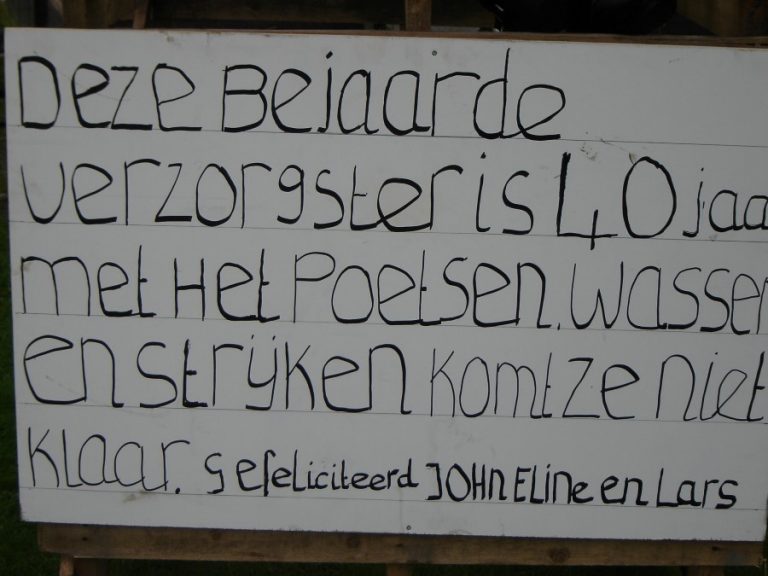 Deze Bejaarde
verzorgster is 40 jaa
met Het Poetsen. Wassen
en strijken komt ze niet
klaar. gefeliciteerd JOHN ELine en Lars